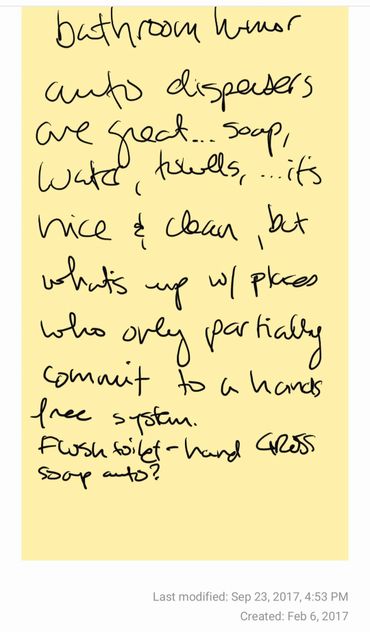 bathroom humor
auto dispensers
are great... soap,
water, towells, ...it's
nice & clean, but
what's up w/ places
who only partially
commit to a hands
free system.
Flush toilet - hand GROSS
soap auto?
Last modified: Sep 23, 2017, 4:53 PM
Created: Feb 6, 2017